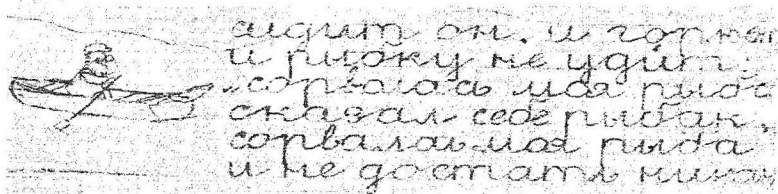 сидит он. и горюет
и рыбку не удит.
„сорвалась моя рыба
сказал себе рыбак,
сорвалась моя рыба
и не достать никак